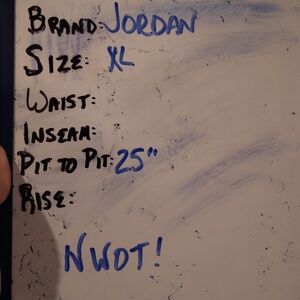 BRAND: JORDAN
SIZE: XL
WAIST:
INSEAM:
PIT TO PIT: 25"
RISE:
NWOT!